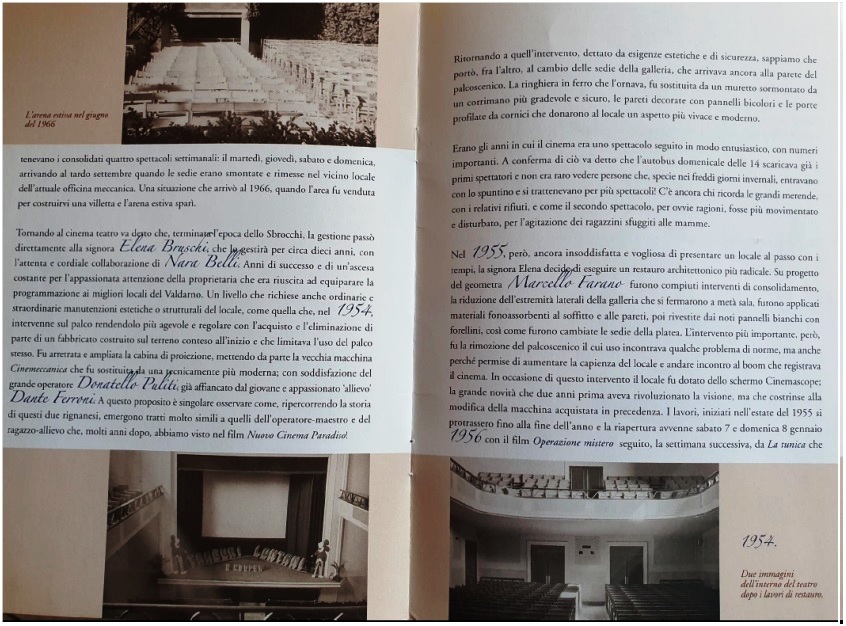 L'arena estiva nel giugno
del 1966
tenevano i consolidati quattro spettacoli settimanali: il martedì, giovedì, sabato e domenica,
arrivando al tardo settembre quando le sedie erano smontate e rimesse nel vicino locale
dell'attuale officina meccanica. Una situazione che arrivò al 1966, quando l'area fu venduta
per costruirvi una villetta e l'arena estiva sparì.
Tornando al cinema teatro va detto che, terminate l'epoca dello Sbrocchi, la gestione passò
direttamente alla signora Elena Bruschi, che lo gestirà per circa dieci anni, con
l'attenta e cordiale collaborazione di Nara Belli. Anni di successo e di un'ascesa
costante per l'appassionata attenzione della proprietaria che era riuscita ad equiparare la
programmazione ai migliori locali del Valdarno. Un livello che richiese anche ordinarie e
straordinarie manutenzioni estetiche o strutturali del locale, come quella che, nel 1954,
intervenne sul palco rendendolo più agevole e regolare con l'acquisto e l'eliminazione di
parte di un fabbricato costruito sul terreno conteso all'inizio e che limitava l'uso del palco
stesso. Fu arretrata e ampliata la cabina di proiezione, mettendo da parte la vecchia macchina
Cinemeccanica che fu sostituita da una tecnicamente più moderna; con soddisfazione del
grande operatore Donatello Puliti, già affiancato dal giovane e appassionato 'allievo'
Dante Ferroni. A questo proposito è singolare osservare come, ripercorrendo la storia
di questi due rignanesi, emergono tratti molto simili a quelli dell'operatore-maestro e del
ragazzo-allievo che, molti anni dopo, abbiamo visto nel film Nuovo Cinema Paradiso!
Ritornando a quell'intervento, dettato da esigenze estetiche e di sicurezza, sappiamo che
portò, fra l'altro, al cambio delle sedie della galleria, che arrivava ancora alla parete del
palcoscenico. La ringhiera in ferro che l'ornava, fu sostituita da un muretto sormontato da
un corrimano più gradevole e sicuro, le pareti decorate con pannelli bicolori e le porte
profilate da cornici che donarono al locale un aspetto più vivace e moderno.
Erano gli anni in cui il cinema era uno spettacolo seguito in modo entusiastico, con numeri
importanti. A conferma di ciò va detto che l'autobus domenicale delle 14 scaricava già i
primi spettatori e non era raro vedere persone che, specie nei freddi giorni invernali, entravano
con lo spuntino e si trattenevano per più spettacoli! C'è ancora chi ricorda le grandi merende,
con i relativi rifiuti, e come il secondo spettacolo, per ovvie ragioni, fosse più movimentato
e disturbato, per l'agitazione dei ragazzini sfuggiti alle mamme.
Nel 1955, però, ancora insoddisfatta e vogliosa di presentare un locale al passo con i
tempi, la signora Elena decide di eseguire un restauro architettonico più radicale. Su progetto
del geometra Marcello Farano furono compiuti interventi di consolidamento,
la riduzione dell'estremità laterali della galleria che si fermarono a metà sala, furono applicati
materiali fonoassorbenti al soffitto e alle pareti, poi rivestite dai noti pannelli bianchi con
forellini, così come furono cambiate le sedie della platea. L'intervento più importante, però,
fu la rimozione del palcoscenico il cui uso incontrava qualche problema di norme, ma anche
perché permise di aumentare la capienza del locale e andare incontro al boom che registrava
il cinema. In occasione di questo intervento il locale fu dotato dello schermo Cinemascope;
la grande novità che due anni prima aveva rivoluzionato la visione, ma che costrinse alla
modifica della macchina acquistata in precedenza. I lavori, iniziati nell'estate del 1955 si
protrassero fino alla fine dell'anno e la riapertura avvenne sabato 7 e domenica 8 gennaio
1956 con il film Operazione mistero seguito, la settimana successiva, da La tunica che
1954.
Due immagini
dell'interno del teatro
dopo i lavori di restauro.